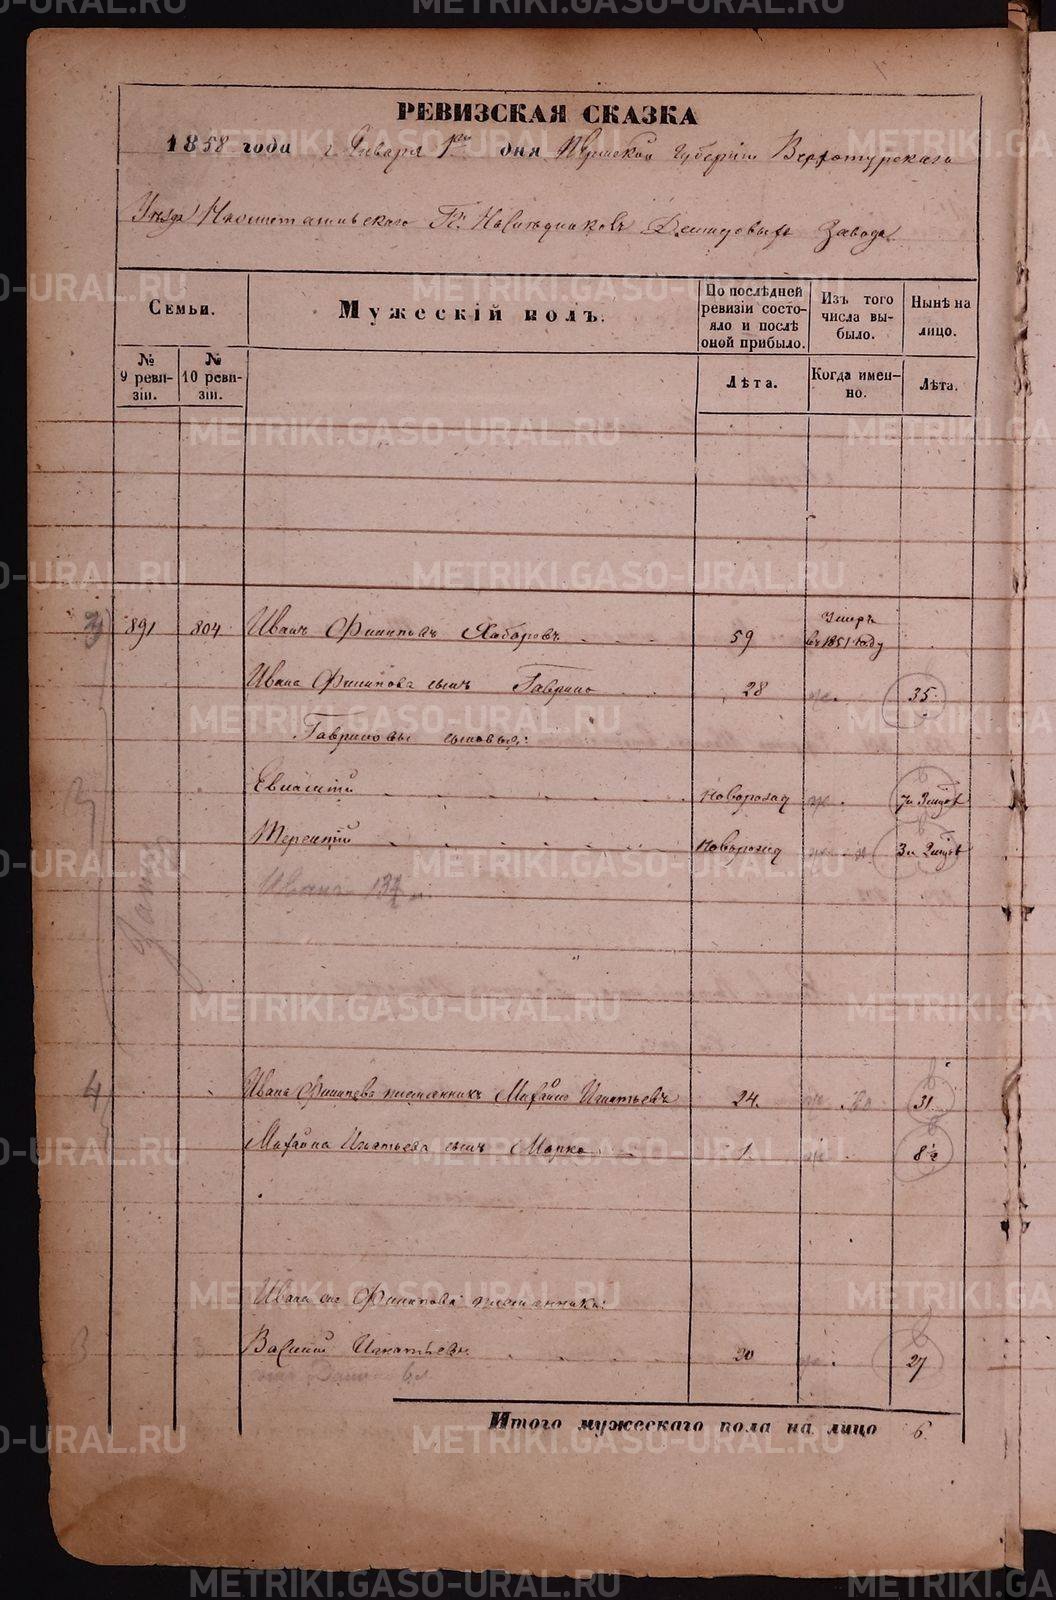 РЕВИЗСКАЯ СКАЗКА
1858 года Января 1го дня Пермской Губернiи Верхотурскаго
Уѣзда Г. Наслѣдниковъ Демидовыхъ Завода
Семьи.
Мужескiй полъ.
По послѣдней ревизiи состояло и послѣ оной прибыло.
Изъ того числа выбыло.
Нынѣ на лицо.
№ 9 ревизiи.
№ 10 ревизiи.
Лѣта.
Когда именно.
Лѣта.
3) 891 804 Иванъ Филиповъ Хабаровъ 59 Умеръ въ 1851 году
Ивана Филипова сынъ Гаврило 28 35
Гавриловы сыновья:
Евлампiй новорожд 7 и
Терентiй новорожд 3 и
Иванъ 13
4 Ивана Филипова племянникъ Михайло Игнатьевъ 24 31
Михайла Игнатьева сынъ Марко 1 8½
Ивана Филипова племянникъ:
Василий Игнатьевъ 20 27
Итого мужескаго пола на лицо 6
METRIKI.GASO-URAL.RU